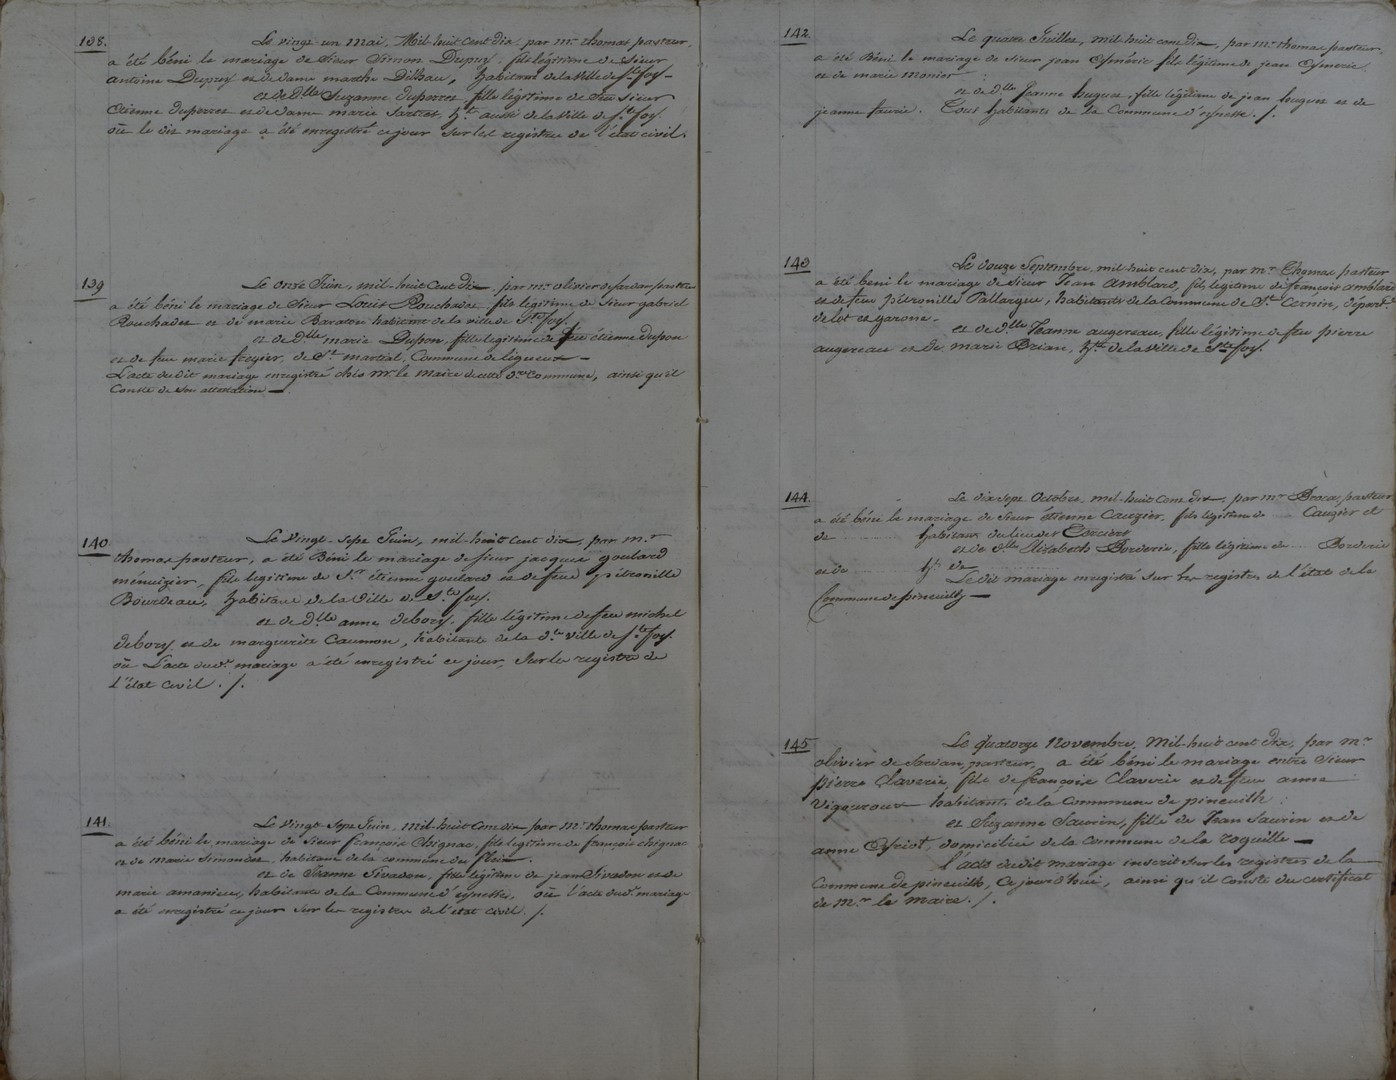 138.
Le vingt un Mai, Mil-huit Cent dix, par mr. thomas pasteur,
a été béni le mariage de Sieur Simon Dupuy, fils légitime de Sieur
antoine Dupuy et de dame marthe Dilhau, habitant de la Ville de Ste. foy -
et de dlle Suzanne duperret, fille légitime de feu Sieur
Etienne duperret et de dame marie Sartret, ht. aussi de la Ville de Ste. foy
où le dit mariage a été enregistré ce jour sur les registre de l'état civil.
139
Le onze Juin, mil-huit Cent dix, par mr. olivier de sardan pasteur
a été béni le mariage de Sieur Louis Rouchades, fils legitime de Sieur gabriel
Rouchades et de marie Baratou habitant de la ville de Ste foy.
et de dlle marie Dupon, fille légitime de feu étienne dupon
et de feue marie freyier, de St. martial, Commune de ligueux -
L'acte du dit mariage enregistré chés mr. le maire de cette de. Commune, ainsi qu'il
Conste de son attestation -
140
Le Vingt-Sept Juin, mil-huit Cent dix par mr.
thomas pasteur, a été Béni le mariage de Sieur jacques goulard
menuizier, fils légitime de Sr. étienne goulard et de feue pétronille
Bourdeau, habitant de la Ville de Ste. foy.
et de dlle anne debory, fille légitime de feu michel
debory et de marguerite Caumon, habitante de la de. Ville de Ste. foy
où L'acte du dt. mariage a été enregistré ce jour, Sur les registre de
l'état civil. /.
141.
Le Vingt-Sept Juin, mil-huit Cent dix par Mr. thomas pasteur
a été béni le mariage de Sieur françois Chignac, fils légitime de françois Chignac
et de marie Simondet, habitant de la commune du fleix.
et de Jeanne Sivadon, fille légitime de jean Sivadon et de
marie amanieu, habitante de la Commune d'eynesse, où l'acte du dt. mariage
a été enregistré ce jour sur les registres de l'état civil. /.
142
Le quatre Juillet, mil-huit cent dix, par mr. thomas pasteur,
a été Béni le mariage de Sieur jean Eyméric fils légitime de jean Eymeric
et de marie monier
et de dlle Jeanne huguet, fille légitime de jean huguet et de
jeanne faurie. Tous habitants de la Commune d'eynesse. /.
143
Le douze Septembre, mil-huit cent dix, par mr. Thomas pasteur
a été béni le mariage de Sieur Jean amblard, fils légitime de françois amblard
et de feue pétronille Pallargue, habitants de la Commune de St. Cernin, départ.
de lot et garone -
et de dlle Jeanne augereau, fille légitime de feu pierre
augereau et de marie Brian, hte. de la Ville de Ste foy.
144
Le dix-sept Octobre, mil-huit Cent dix, par mr Brocas pasteur
a été béni le mariage de Sieur étienne Cauzier, fils légitime de Cauzier et
de habitant du lieu des Torciers
et de dlle Elizabeth Borderie, fille légitime de Borderie
et de ht. de
Le dit mariage enregistré sur les registres de l'état de la
Commune de pineuilh -
145
Le quatorze Novembre, Mil-huit cent dix, par mr.
olivier de Sardan, pasteur, a été béni le mariage entre Sieur
pierre Claverie, fils de françois Claverie et de feue anne
Vigouroux habitants de la Commune de pineuilh
et Suzanne Saurin, fille de Jean Saurin et de
anne Eyriot, domiciliée de la commune de la roquille -
l'acte du dit mariage inscrit sur les registres de la
Commune de pineuilh, Ce jourd'hui, ainsi qu'il conste du certificat
de Mr. le Maire. /.